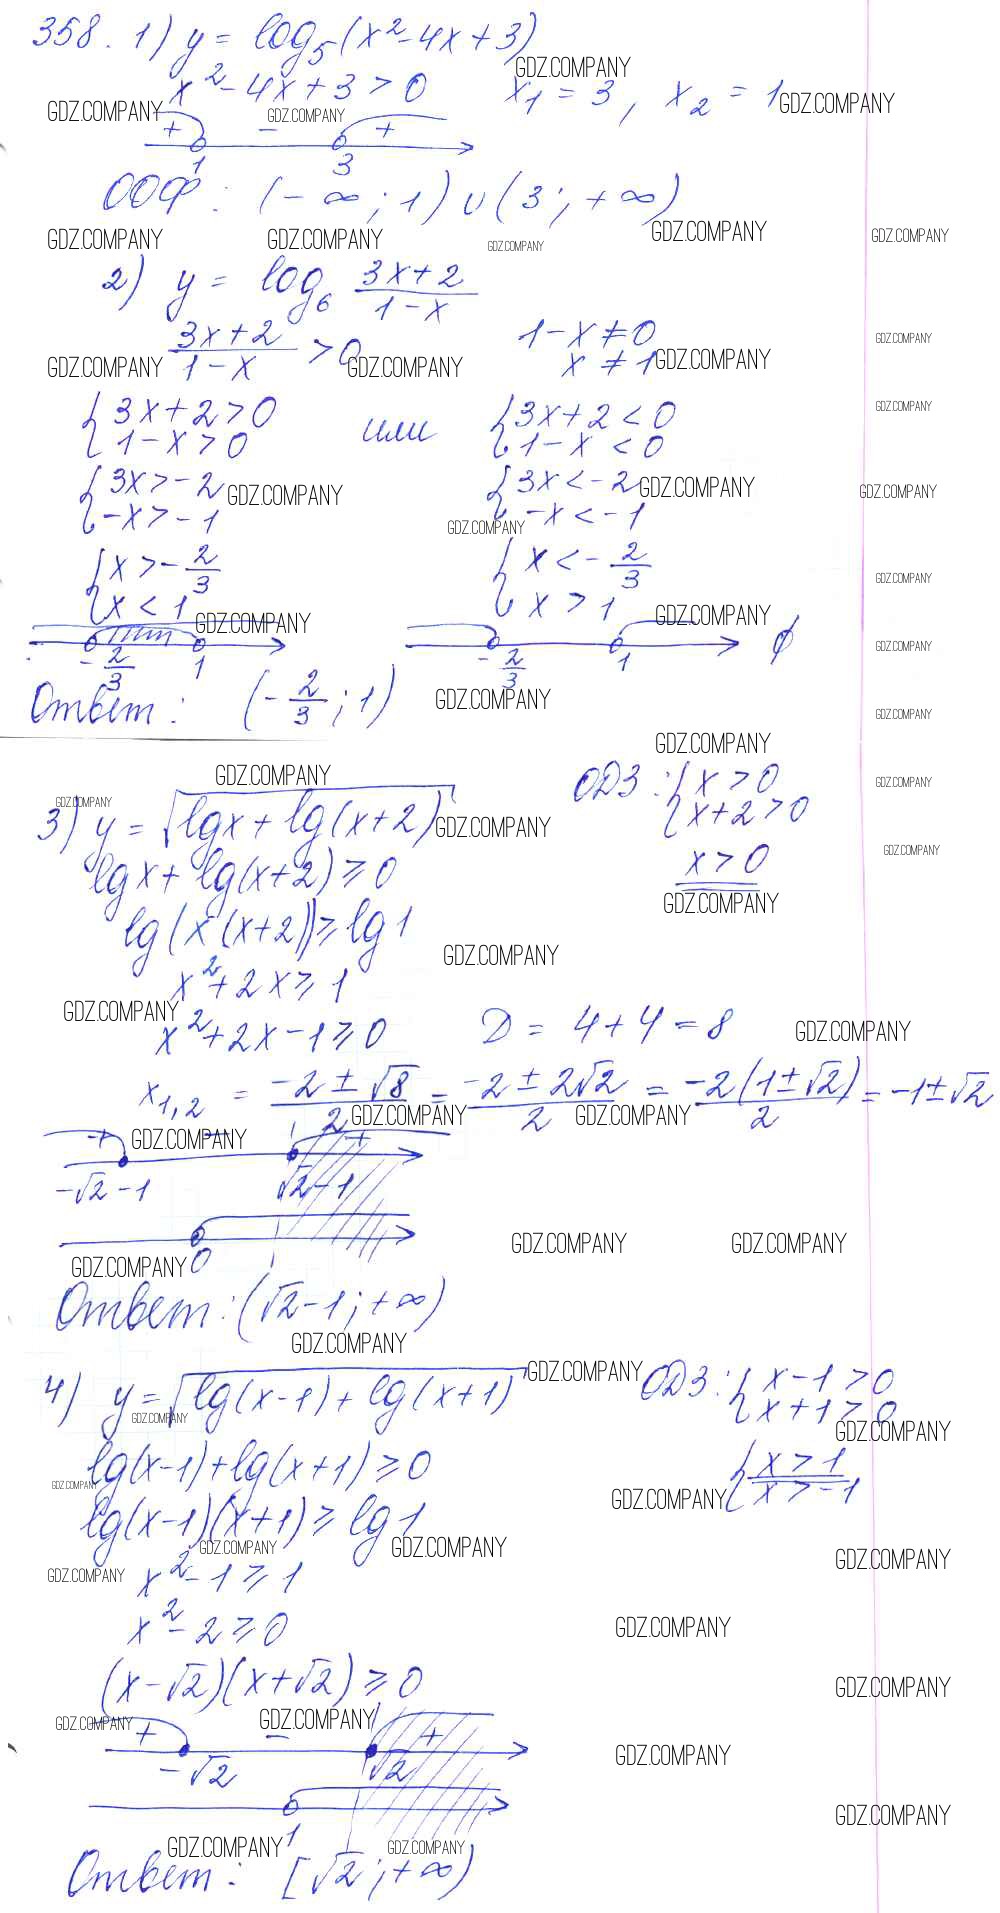 358. 1) y = log₅(x² - 4x + 3)
x² - 4x + 3 > 0    x₁ = 3, x₂ = 1
+ - +
1 3
ООФ: (-∞; 1) ∪ (3; +∞)
2) y = log₆ (3x+2)/(1-x)
(3x+2)/(1-x) > 0    1-x ≠ 0
x ≠ 1
{ 3x+2 > 0    или    { 3x+2 < 0
{ 1-x > 0    { 1-x < 0
{ 3x > -2    { 3x < -2
{ -x > -1    { -x < -1
{ x > -2/3    { x < -2/3
{ x < 1    { x > 1
-2/3 1    -2/3 1 ∅
Ответ: (-2/3; 1)
3) y = √(lgx + lg(x+2))    ОДЗ: { x > 0
{ x+2 > 0
lgx + lg(x+2) ≥ 0    x > 0
lg(x(x+2)) ≥ lg1
x² + 2x ≥ 1
x² + 2x - 1 ≥ 0    D = 4+4 = 8
x₁,₂ = (-2 ± √8)/2 = (-2 ± 2√2)/2 = -2(1±√2)/2 = -1±√2
+ - +
-√2-1 √2-1
0
Ответ: (√2-1; +∞)
4) y = √(lg(x-1) + lg(x+1))    ОДЗ: { x-1 > 0
{ x+1 > 0
lg(x-1) + lg(x+1) ≥ 0    { x > 1
{ x > -1
lg(x-1)(x+1) ≥ lg1
x² - 1 ≥ 1
x² - 2 ≥ 0
(x-√2)(x+√2) ≥ 0
+ - +
-√2 √2
1
Ответ: [√2; +∞)
GDZ.COMPANY